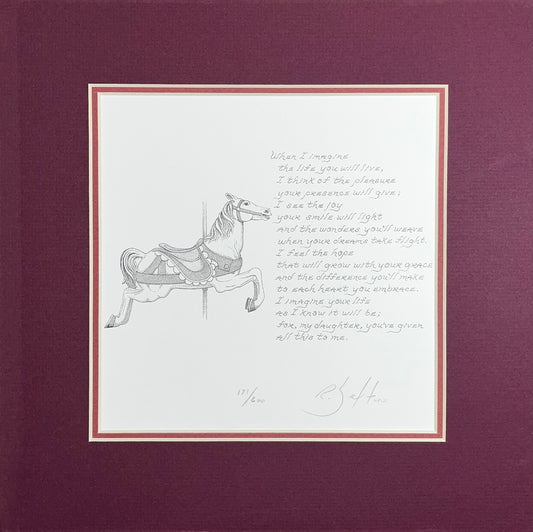 When I imagine
the life you will live,
I think of the pleasure
your presence will give;
I see the joy
your smile will light
and the wonders you'll weave
when your dreams take flight.
I feel the hope
that will grow with your grace
and the difference you'll make
to each heart you embrace.
I imagine your life
as I know it will be;
for, my daughter, you've given
all this to me.
R.